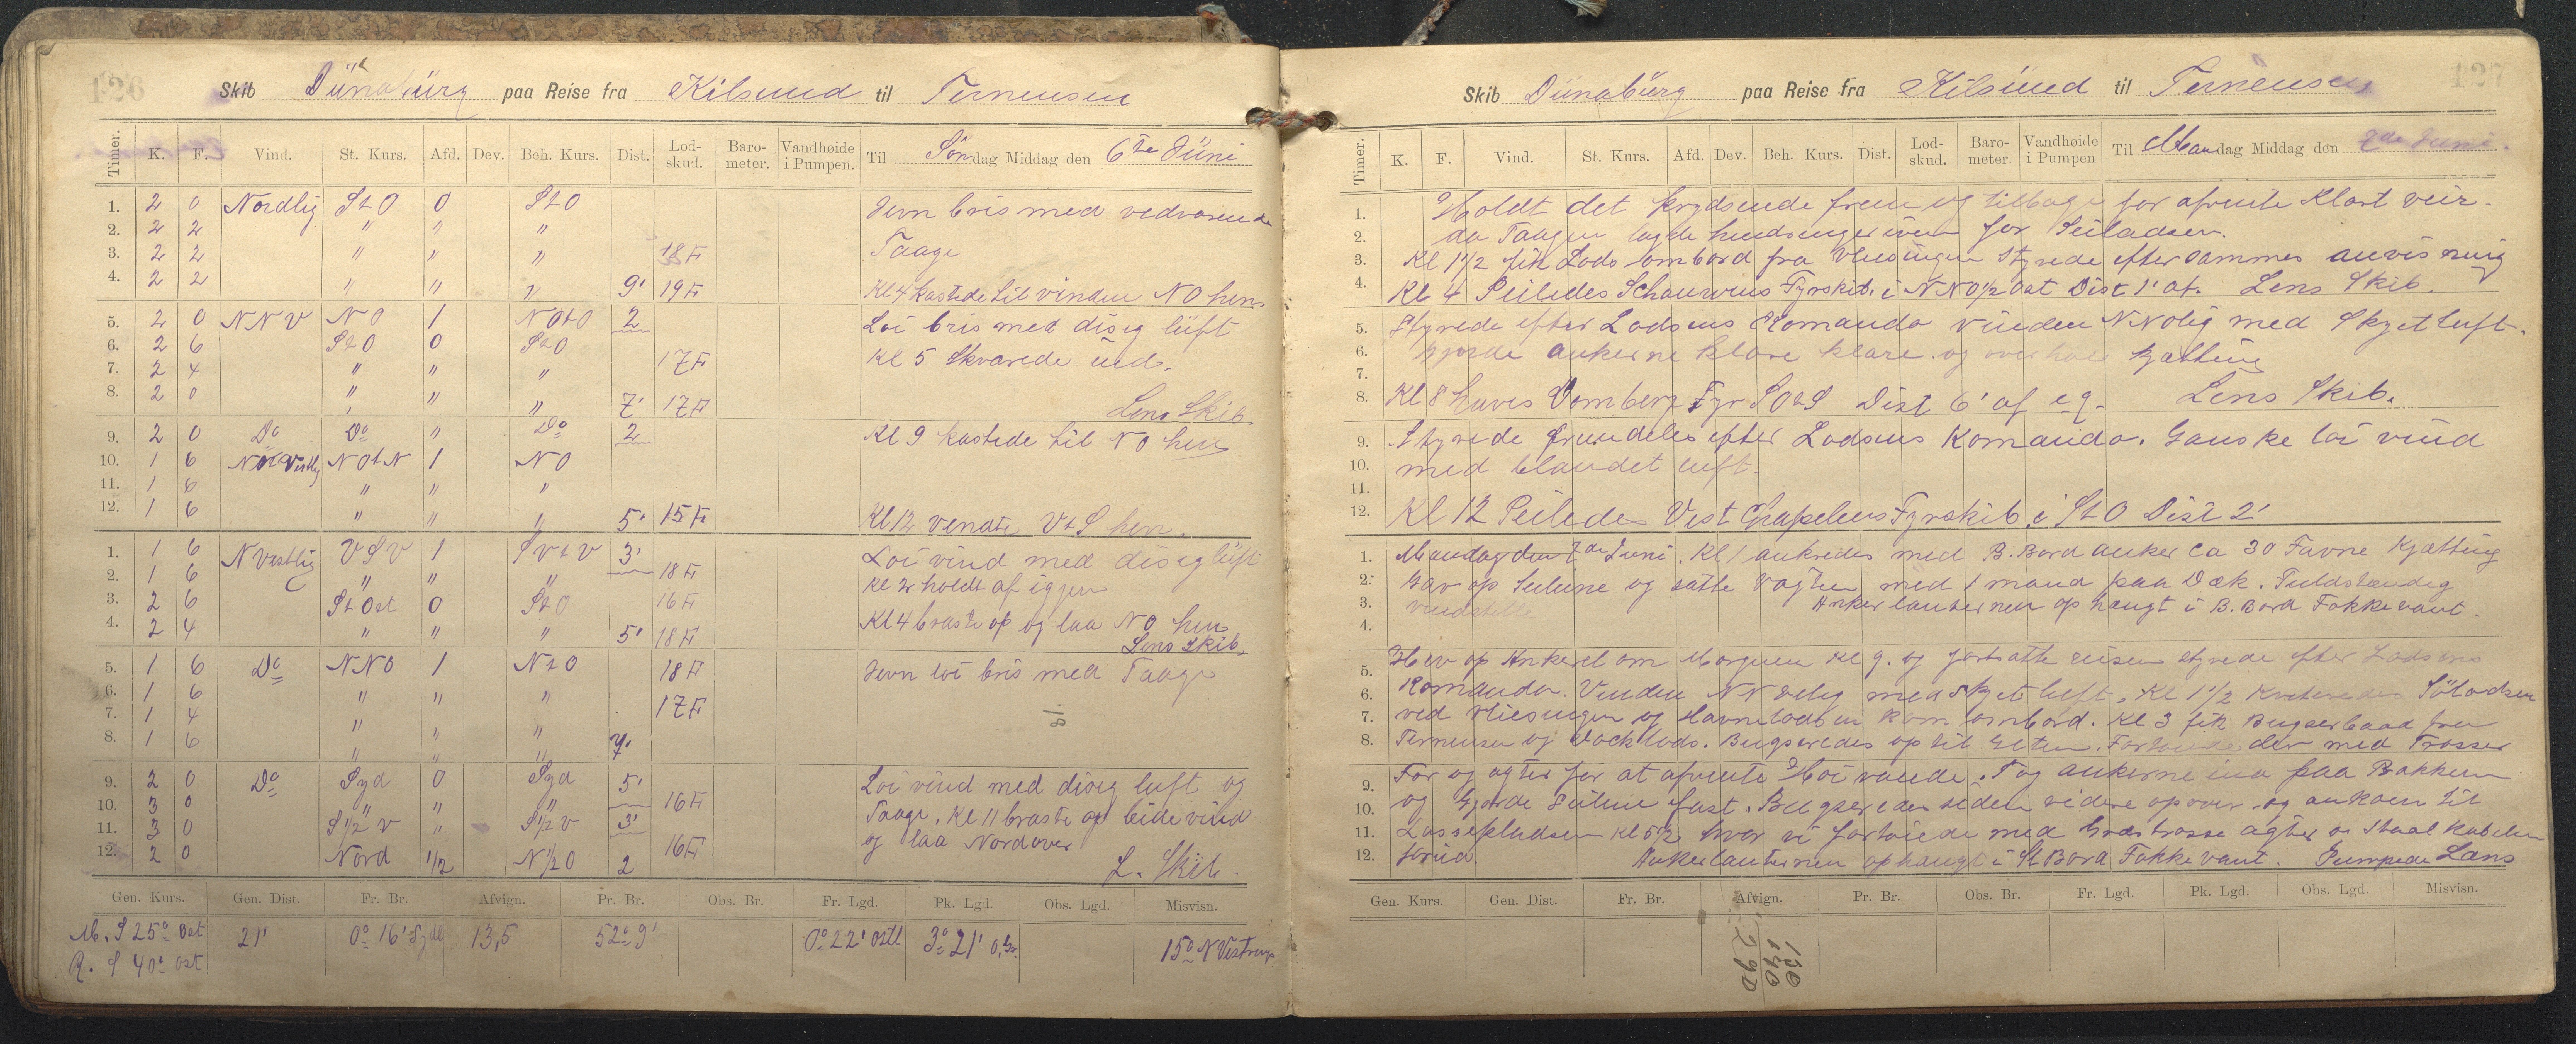 126
Skib Dünabürg paa Reise fra Kilsund til Ternensen
Timer. K. F. Vind. St. Kurs. Afd. Dev. Beh. Kurs. Dist. Lod-skud. Baro-meter. Vandhøide i Pumpen. Til Søndag Middag den 6te Jüni
1. 2 0 Nordlig StO 0 StO Jevn bris med vedvarende
2. 2 2 " " " Taage
3. 2 2 " " " 18 F
4. 2 2 " " " 9' 19 F Kl 4 kastede til vinden NO hen
5. 2 0 NNV NO 1 NOtO 2 Loi bris med disig lüft
6. 2 6 StO 0 StO Kl 5 Skvarede üd.
7. 2 4 " " " 17 F
8. 2 0 " " " 7' 17 F Lens Skib
9. 2 0 Do Do " Do 2 Kl 9 kastede til NO hen
10. 1 6 NVestlig NOtN 1 NO
11. 1 6 " " "
12. 1 6 " " " 5' 15 F Kl 12 vendte VtS hen.
1. 1 6 NVestlig VSV 1 SVtV 3' Loi vind med disig lüft
2. 1 6 " " " 18 F Kl 2 holdt af igjen
3. 2 6 St Ost 0 StO 16 F
4. 2 4 " " " 5' 18 F Kl 4 braste op og laa NO hen
Lens Skib.
5. 1 6 Do NNO 1 NtO 18 F Jevn loi bris med Taage
6. 1 6 " " " 17 F
7. 1 4 " " "
8. 1 6 " " " 7'
9. 2 0 Do Syd 0 Syd 5' Loi vind med disig luft og
10. 3 0 " " " 16 F Taage. Kl 11 braste op bide vind
11. 3 0 S 1/2 V " S 1/2 V 3' og laa Nordover
12. 2 0 Nord 1/2 N 1/2 O 2 16 F L. Skib
Gen. Kurs. Gen. Dist. Fr. Br. Afvign. Pr. Br. Obs. Br. Fr. Lgd. Pk. Lgd. Obs. Lgd. Misvisn.
M. S 25° Ost 21' 0° 16' Syd 13,5 52° 9' 0° 22' Ostl 3° 21' O. Gr. 15° N Vestring
R. S 40° Ost
127
Skib Dünabürg paa Reise fra Kilsünd til Ternensen
Timer. K. F. Vind. St. Kurs. Afd. Dev. Beh. Kurs. Dist. Lod-skud. Baro-meter. Vandhøide i Pumpen Til Mandag Middag den 7de Juni.
1. Holdt det krydsende frem og tilbage for afvente Klart veir
2. da Taagen lagde hindringer iveien for Seiladsen.
3. Kl 1 1/2 fik Lods ombord fra Vlissingen Styrede efter sammes anvisning
4. Kl 4 Peiledes Schauwens Fyrskib i NNO 1/2 Ost Dist 1' af. Lens Skib.
5. Styrede efter Lodsens Komando vinden NNOlig med Skyet luft.
6. Gjorde ankerne klare klare og overhalte Kjætting
7.
8. Kl 8 haves Domberg Fyr SOtS Dist 6' af e.g. Lens Skib.
9. Styrede fremdeles efter Lodsens Komando. Ganske loi vind
10. med blandet luft.
11.
12. Kl 12 Peiledes Vest Fyrskib i StO Dist 2'
1. Mandag den 7de Juni. Kl 1 ankredes med B. Bord anker ca 30 Favne Kjætting
2. Gav op Seilene og satte vagten med 1 mand paa Dæk. Fuldstændig
3. vindstille Ankerlanternen ophængt i B. Bord Fokkevant.
4.
5. Hev op Ankeret om Morgenen Kl 9. og fortsatte reisen styrede efter Lodsens
6. Komando. Vinden NNVelig med skyet luft. Kl 1 1/2 Kviteredes Sölodsen
7. ved Vlissingen og Havnelodsen kom ombord. Kl 3 fik Bugserbaad fra
8. Ternensen og Docklods. Bugseredes op til der med Trosser
9. For og agter for at afvente Høivande. Tog ankerne ind paa Bakken
10. og gjorde Seilene fast. Bugseredes siden videre opover og ankom til
11. Lossepladsen Kl 5 1/2 hvor vi fortøiede med Grastrosse agter og Staalkabelen
12. forüd. Ankerlanternen ophængt i St Bord Fokkevant. Pumpede Læns
Gen. Kurs. Gen. Dist. Fr. Br. Afvign. Pr. Br. Obs. Br. Fr. Lgd. Pk. Lgd. Obs. Lgd. Misvisn.
150
140
290